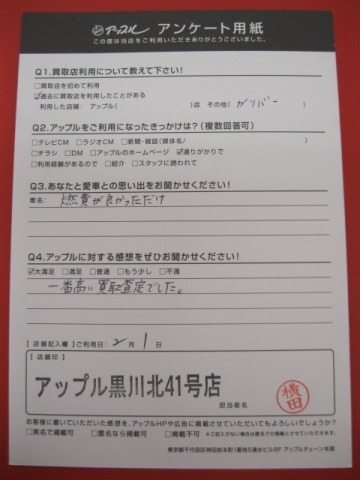 アップル アンケート用紙
この度は当店をご利用いただきありがとうございました。
Q1.買取店利用について教えて下さい!
□買取店を初めて利用
☑過去に買取店を利用したことがある
利用した店舗: アップル( )店 その他(ガリバー )
Q2.アップルをご利用になったきっかけは?(複数回答可)
□テレビCM □ラジオCM □新聞・雑誌(媒体名/ )
□チラシ □DM □アップルのホームページ ☑通りがかりで
□利用経験があるので □紹介 □スタッフに誘われて
Q3.あなたと愛車との思い出をお聞かせください!
車名: 燃費が良かっただけ
Q4.アップルに対する感想をぜひお聞かせください!
☑大満足 □満足 □普通 □もう少し □不満
一番高い買取査定でした。
【店舗記入欄】ご利用日: 2月 1日
【店舗印】
アップル黒川北41号店
担当者名
横田
お客様に書いていただいた感想を、アップルHPや広告に掲載させていただいてもよろしいでしょうか?
□実名で掲載可 □匿名なら掲載可 □掲載不可 ※ご記入がない場合は匿名での掲載とさせていただきます。
アップルチェーン本部